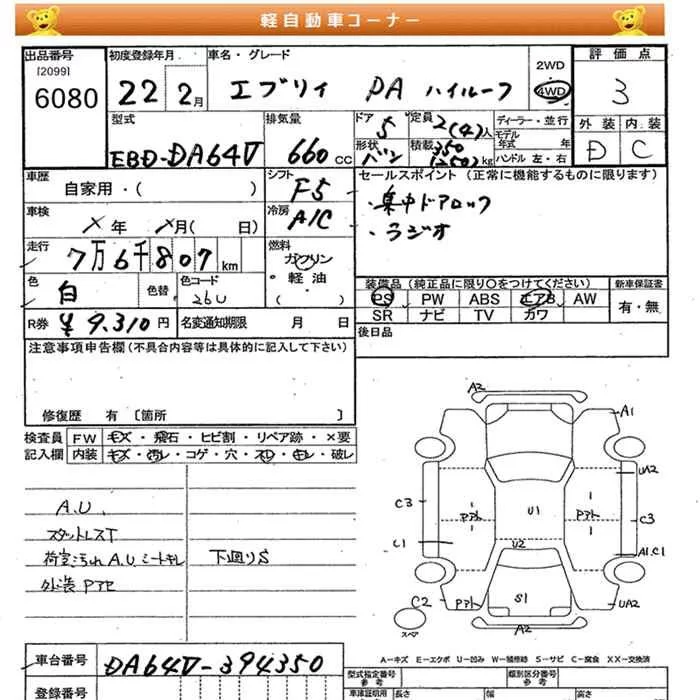 軽自動車コーナー
出品番号 初度登録年月 車名・グレード 評価点
[2099]
6080 22 2月 エブリィ PA ハイルーフ 2WD 4WD 3
外装 内装
D C
型式 排気量 ドア 定員 ディーラー・並行
EBD-DA64V 660cc 5 2(4)人 モデル年式 年式
形状 積載 ハンドル 左・右
バン 350(250)kg
車歴 シフト セールスポイント(正常に機能するものに限ります)
自家用・( ) F5 ・集中ドアロック
車検 冷房 ・ラジオ
×年 ×月( 日) A/C
走行 燃料
7万6千807km ガソリン
色 色替 色コード ・軽油
白 26U ( )
装備品(純正品に限り○をつけてください) 新車保証書
PS PW ABS エアB AW 有・無
SR ナビ TV カワ
R券 ¥9,310円 名変通知期限 月 日 後日品
注意事項申告欄(不具合内容等は具体的に記入して下さい)
修復歴 有〔箇所 〕
検査員 FW キズ・飛石・ヒビ割・リペア跡・×要
記入欄 内装 キズ・汚レ・コゲ・穴・スレ・キレ・破レ
A.U.
スタットレスT
荷室汚れ A.U シートキレ 下廻りS
外装 Pアセ
A2
A1
UA2
C3 Pアト U1 Pアト C3
C1 U2 A1.C1
C2 Pアト S1 UA2
スペア A2
A-キズ E-エクボ U-凹み W-補修跡 S-サビ C-腐食 XX-交換済
車台番号 DA64V-394350 型式指定番号 参考 類別区分番号 参考
登録番号 車庫証明用 参考 長さ 幅 高さ